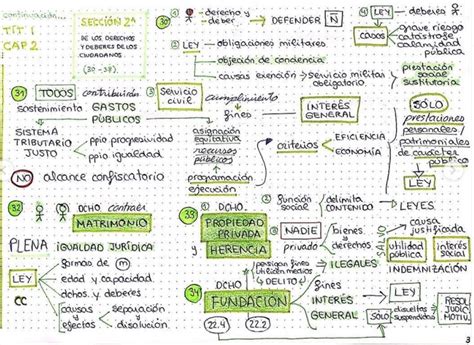 continuación...
TÍT. 1
CAP. 2
SECCIÓN 2ª
DE LOS DERECHOS
Y DEBERES DE LOS
CIUDADANOS
(30 - 38)
30
① derecho y
deber
DEFENDER Ñ
② LEY obligaciones militares
objeción de conciencia
causas exención → Servicio militar
obligatorio
prestación
social
sustitutoria
③ Servicio
civil
cumplimiento
fines
INTERÉS
GENERAL
④ LEY deberes
CASOS
grave riesgo
catástrofe
calamidad
pública
31
① TODOS contribuirán
sostenimiento GASTOS
PÚBLICOS
SISTEMA
TRIBUTARIO
JUSTO
ppio progresividad
ppio igualdad
NO alcance confiscatorio
asignación
equitativa
recursos
públicos
programación
ejecución
criterios
EFICIENCIA
ECONOMÍA
SÓLO
prestaciones
personales/
patrimoniales
de carácter
público
LEY
32
DCHO contraer
MATRIMONIO
PLENA IGUALDAD JURÍDICA
LEY
CC
formas de m
edad y capacidad
dchos. y deberes
causas y
efectos
separación
disolución
33
① DCHO.
PROPIEDAD
PRIVADA
y HERENCIA
② función
social
delimita
CONTENIDO
LEYES
③ NADIE
privado
bienes
y
derechos
SALVO
causa
justificada
utilidad
pública
interés
social
INDEMNIZACIÓN
persigan fines
utilicen medios
"DELITO"
ILEGALES
34
DCHO
FUNDACIÓN
22.4
22.2
fines
INTERÉS
GENERAL
LEY
SÓLO
disueltas
suspendidas
RESOL.
JUDIC.
MOTIV.